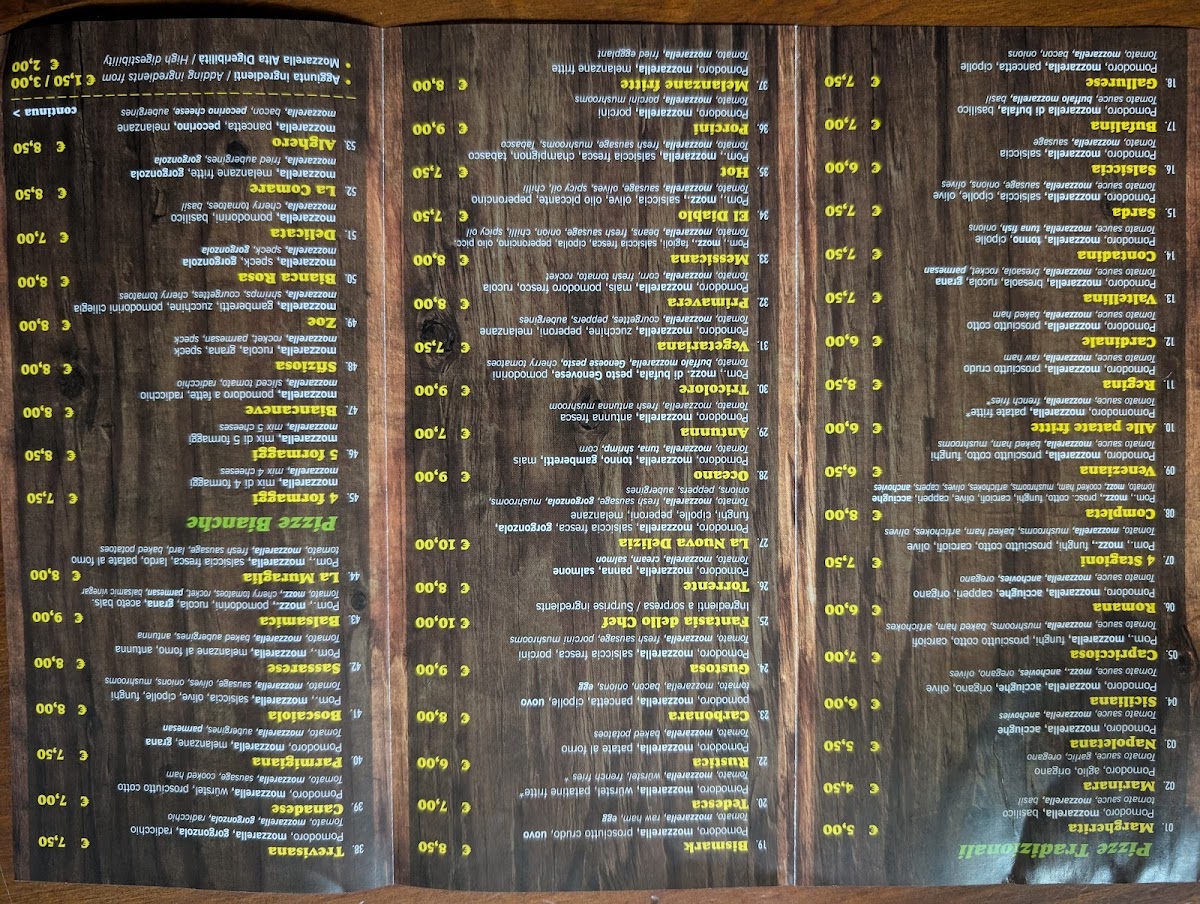 Pizze Tradizionali
01. Margherita € 5,00
Pomodoro, mozzarella, basilico
tomato sauce, mozzarella, basil
02. Marinara € 4,50
Pomodoro, aglio, origano
Tomato sauce, garlic, oregano
03. Napoletana € 5,50
Pomodoro, mozzarella, acciughe
Tomato sauce, mozzarella, anchovies
04. Siciliana € 6,00
Pomodoro, mozzarella, acciughe, origano, olive
Tomato sauce, mozz., anchovies, oregano, olives
05. Capricciosa € 7,00
Pom., mozzarella, funghi, prosciutto cotto, carciofi
Tomato, mozzarella, mushrooms, baked ham, artichokes
06. Romana € 6,00
Pomodoro, mozzarella, acciughe, capperi, origano
Tomato sauce, mozzarella, anchovies, oregano
07. 4 Stagioni € 7,50
Pom., mozz., funghi, prosciutto cotto, carciofi, olive
Tomato, mozzarella, mushrooms, baked ham, artichokes, olives
08. Completa € 8,00
Pom., mozz., prosc. cotto, funghi, carciofi, olive, capperi, acciughe
Tomato, mozz, cooked ham, mushrooms, artichokes, olives, capers, anchovies
09. Veneziana € 6,50
Pomodoro, mozzarella, prosciutto cotto, funghi
Tomato sauce, mozzarella, baked ham, mushrooms
10. Alle patate fritte € 6,00
Pommodoro, mozzarella, patate fritte*
Tomato sauce, mozzarella, french fries*
11. Regina € 8,50
Pomodoro, mozzarella, prosciutto crudo
Tomato sauce, mozzarella, raw ham
12. Cardinale € 6,00
Pomodoro, mozzarella, prosciutto cotto
Tomato sauce, mozzarella, baked ham
13. Valtellina € 7,50
Pomodoro, mozzarella, bresaola, rucola, grana
Tomato sauce, mozzarella, bresaola, rocket, parmesan
14. Contadina € 7,50
Pomodoro, mozzarella, tonno, cipolle
Tomato sauce, mozzarella, tuna fish, onions
15. Sarda € 7,50
Pomodoro, mozzarella, salsiccia, cipolle, olive
Tomato sauce, mozzarella, sausage, onions, olives
16. Salsiccia € 6,00
Pomodoro, mozzarella, salsiccia
Tomato sauce, mozzarella, sausage
17. Bufalina € 7,00
Pomodoro, mozzarella di bufala, basilico
Tomato sauce, buffalo mozzarella, basil
18. Gallurese € 7,50
Pomodoro, mozzarella, pancetta, cipolle
Tomato, mozzarella, bacon, onions
19. Bismark € 8,50
Pomodoro, mozzarella, prosciutto crudo, uovo
Tomato, mozzarella, raw ham, egg
20. Tedesca € 7,00
Pomodoro, mozzarella, wurstel, patatine fritte*
Tomato, mozzarella, würstel, french fries *
22. Rustica € 6,00
Pomodoro, mozzarella, patate al forno
Tomato, mozzarella, baked potatoes
23. Carbonara € 8,00
Pomodoro, mozzarella, pancetta, cipolle, uovo
tomato, mozzarella, bacon, onions, egg
24. Gustosa € 9,00
Pomodoro, mozzarella, salsiccia fresca, porcini
Tomato, mozzarella, fresh sausage, porcini mushrooms
25. Fantasia dello Chef € 10,00
Ingredienti a sorpresa / Surprise ingredients
26. Torrente € 8,00
Pomodoro, mozzarella, panna, salmone
Tomato, mozzarella, cream, salmon
27. La Nuova Delizia € 10,00
Pomodoro, mozzarella, salsiccia fresca, gorgonzola,
funghi, cipolle, peperoni, melanzane
Tomato, mozzarella, fresh sausage, gorgonzola, mushrooms,
onions, peppers, aubergines
28. Oceano € 9,00
Pomodoro, mozzarella, tonno, gamberetti, mais
Tomato, mozzarella, tuna, shrimp, corn
29. Antunna € 7,00
Pomodoro, mozzarella, antunna fresca
Tomato, mozzarella, fresh antunna mushroom
30. Tricolore € 9,00
Pom., mozz. di bufala, pesto Genovese, pomodorini
Tomato, buffalo mozzarella, Genoese pesto, cherry tomatoes
31. Vegetariana € 7,50
Pomodoro, mozzarella, zucchine, peperoni, melanzane
Tomato, mozzarella, courgettes, peppers, aubergines
32. Primavera € 8,00
Pomodoro, mozzarella, mais, pomodoro fresco, rucola
Tomato, mozzarella, corn, fresh tomato, rocket
33. Messicana € 8,00
Pom., mozz., fagioli, salsiccia fresca, cipolla, peperoncino, olio picc.
Tomato, mozzarella, beans, fresh sausage, onion, chilli, spicy oil
34. El Diablo € 7,50
Pom., mozz., salsiccia, olive, olio piccante, peperoncino
Tomato, mozzarella, sausage, olives, spicy oil, chilli
35. Hot € 7,50
Pom., mozzarella, salsiccia fresca, champignon, tabasco
Tomato, mozzarella, fresh sausage, mushrooms, Tabasco
36. Porcini € 9,00
Pomodoro, mozzarella, porcini
Tomato, mozzarella, porcini mushrooms
37. Melanzane fritte € 8,00
Pomodoro, mozzarella, melanzane fritte
Tomato, mozzarella, fried eggplant
38. Trevisana € 7,50
Pomodoro, mozzarella, gorgonzola, radicchio
Tomato, mozzarella, gorgonzola, radicchio
39. Canadese € 7,00
Pomodoro, mozzarella, würstel, prosciutto cotto
Tomato, mozzarella, sausage, cooked ham
40. Parmigiana € 7,50
Pomodoro, mozzarella, melanzane, grana
Tomato, mozzarella, aubergines, parmesan
41. Boscaiola € 8,00
Pomodoro, mozzarella, salsiccia, olive, cipolle, funghi
Tomato, mozzarella, sausage, olives, onions, mushrooms
42. Sassarese € 8,00
Pom., mozzarella, melanzane al forno, antunna
Tomato, mozzarella, baked aubergines, antunna
43. Balsamica € 9,00
Pom., mozz., pomodorini, rucola, grana, aceto bals.
Tomato, mozz, cherry tomatoes, rocket, parmesan, balsamic vinegar
44. La Muraglia € 8,00
Pom., mozzarella, salsiccia fresca, lardo, patate al forno
tomato, mozzarella, fresh sausage, lard, baked potatoes
Pizze Bianche
45. 4 formaggi € 7,50
mozzarella, mix di 4 formaggi
mozzarella, mix 4 cheeses
46. 5 formaggi € 8,50
mozzarella, mix di 5 formaggi
mozzarella, mix 5 cheeses
47. Biancaneve € 8,00
mozzarella, pomodoro a fette, radicchio
mozzarella, sliced tomato, radicchio
48. Sfiziosa € 8,00
mozzarella, rucola, grana, speck
mozzarella, rocket, parmesan, speck
49. Zoe € 8,00
mozzarella, gamberetti, zucchine, pomodorini ciliegia
mozzarella, shrimps, courgettes, cherry tomatoes
50. Bianca Rosa € 8,00
mozzarella, speck, gorgonzola
mozzarella, speck, gorgonzola
51. Delicata € 7,00
mozzarella, pomodorini, basilico
mozzarella, cherry tomatoes, basil
52. La Comare € 8,50
mozzarella, melanzane fritte, gorgonzola
mozzarella, fried aubergines, gorgonzola
53. Alghero € 8,50
mozzarella, pancetta, pecorino, melanzane
mozzarella, bacon, pecorino cheese, aubergines
continua >
• Aggiunta ingredienti / Adding ingredients from € 1,50 / 3,00
• Mozzarella Alta Digeribilità / High digestibility € 2,00